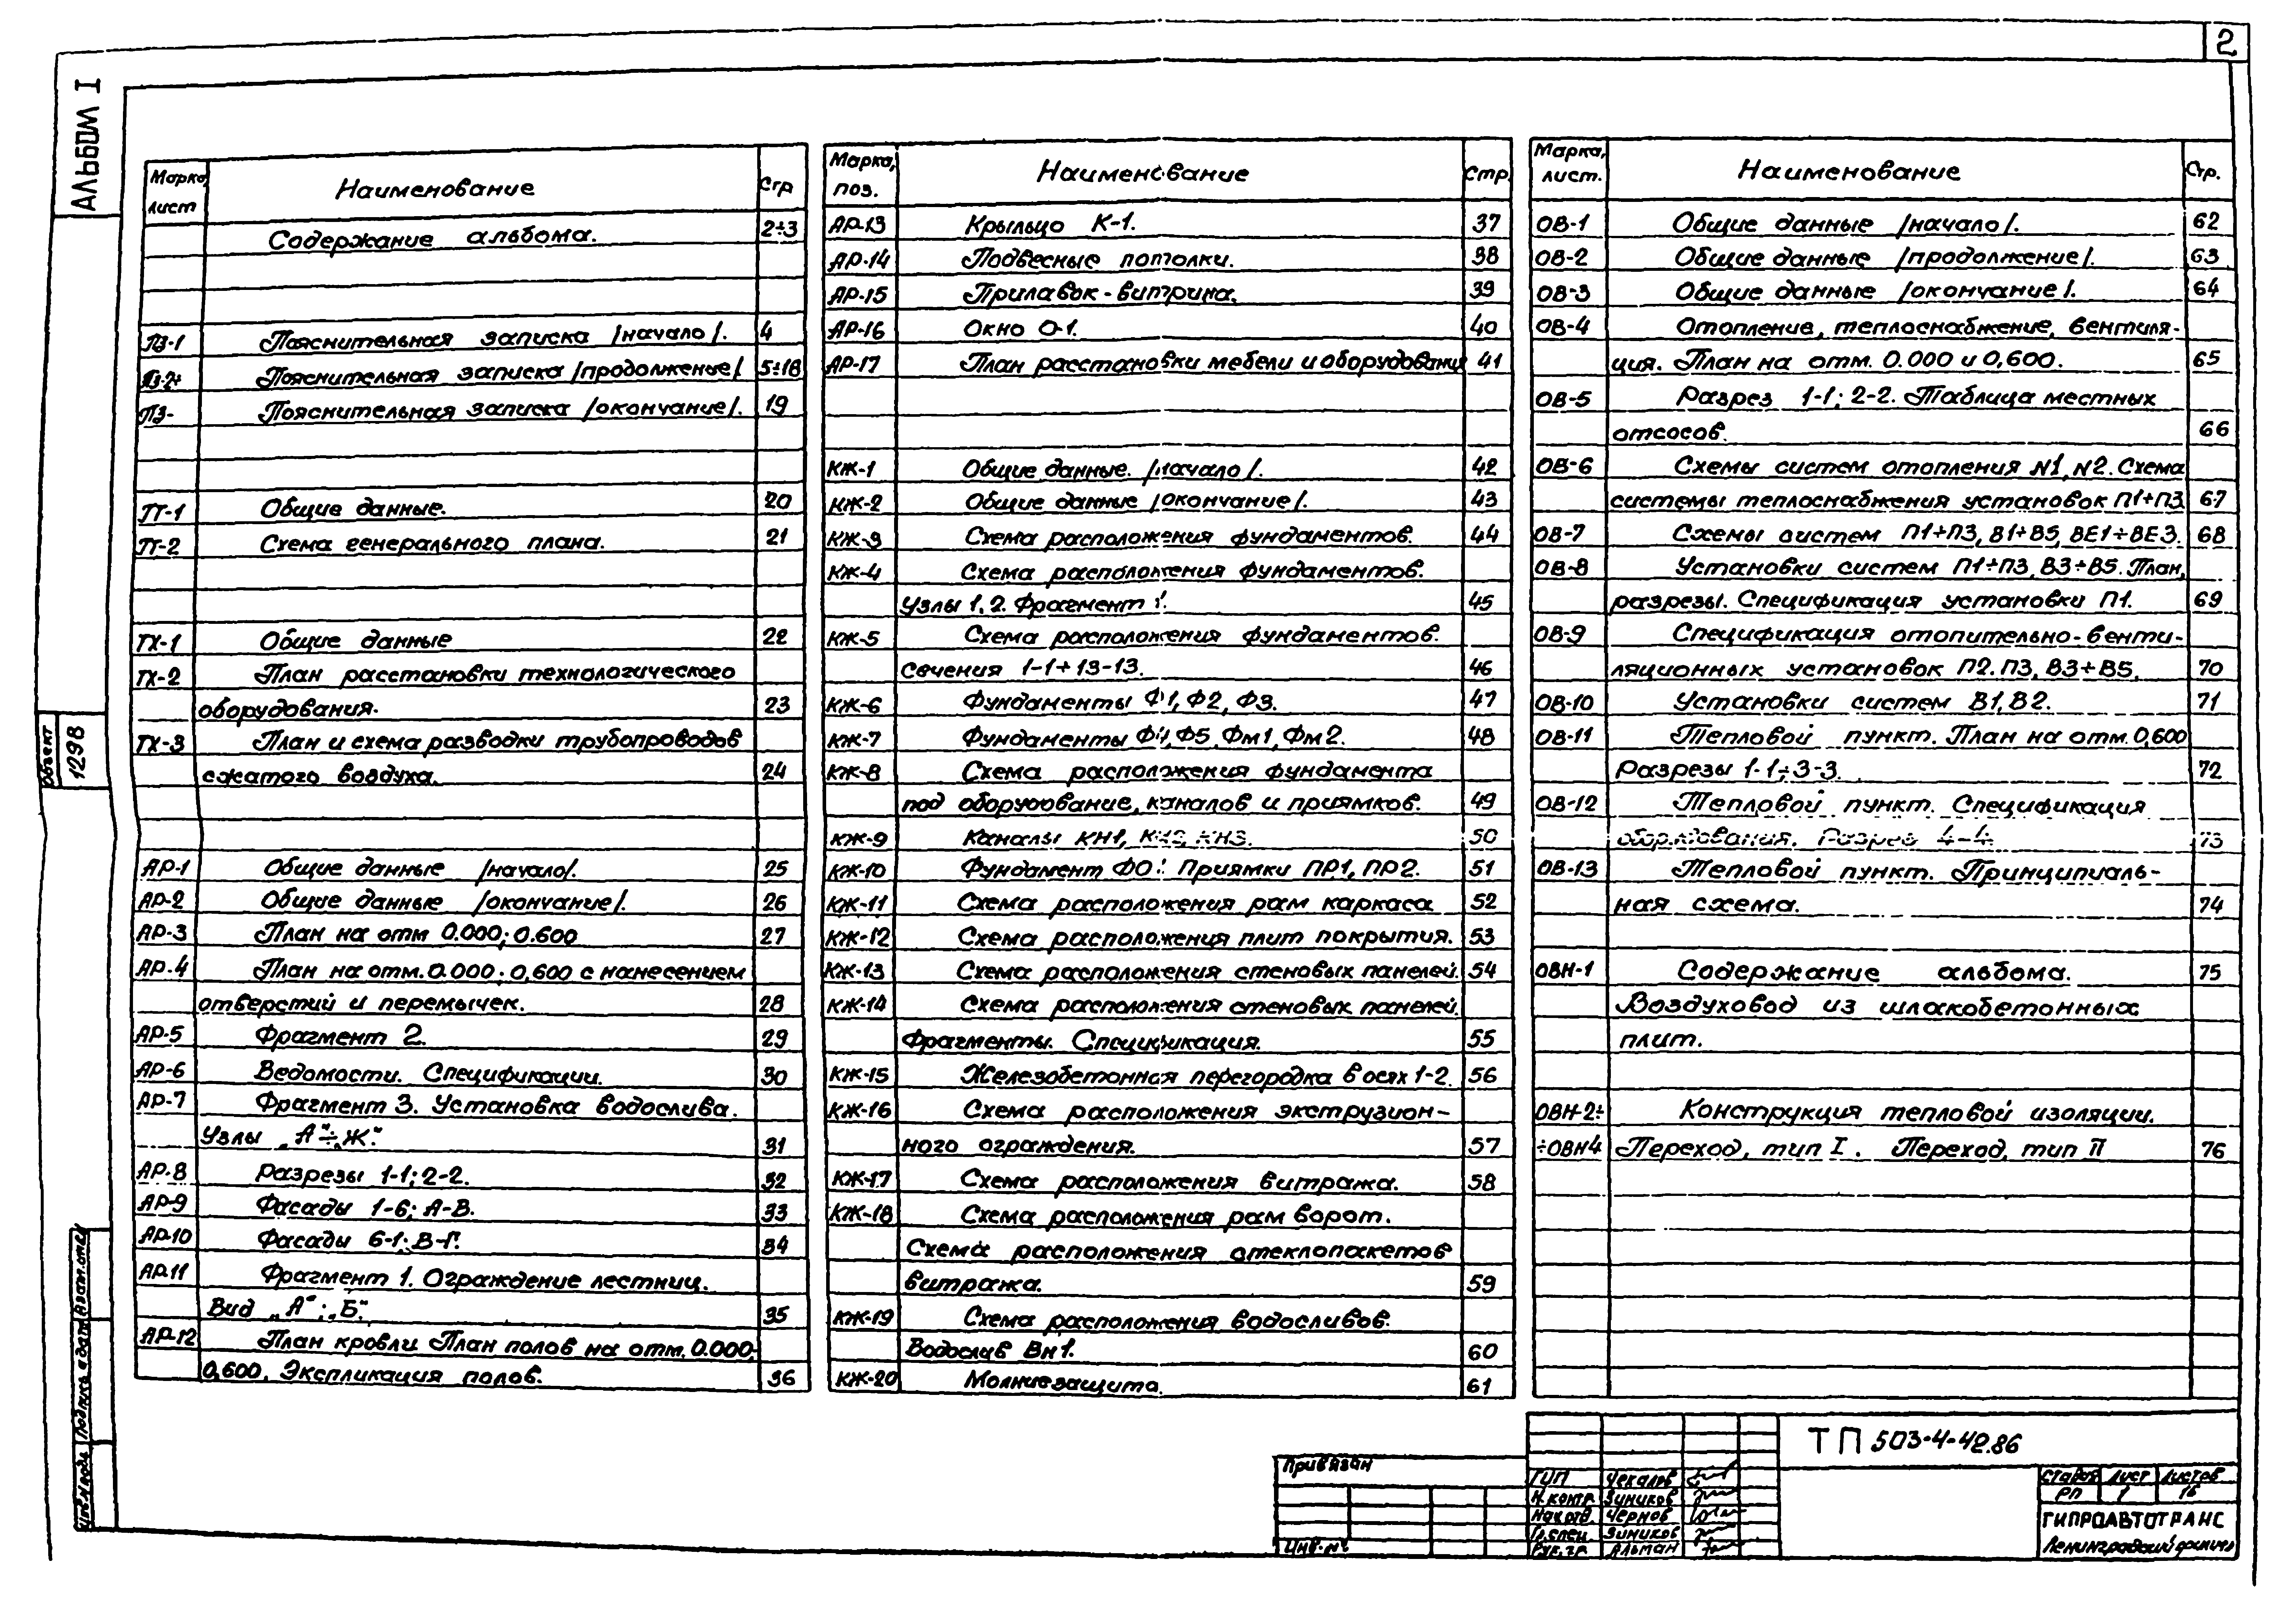 2
АЛЬБОМ I
Марка, лист Наименование Стр
Содержание альбома. 2÷3
ПЗ-1 Пояснительная записка /начало/. 4
ПЗ-2÷ Пояснительная записка /продолжение/. 5÷18
ПЗ- Пояснительная записка /окончание/. 19
ГТ-1 Общие данные. 20
ГТ-2 Схема генерального плана. 21
ТХ-1 Общие данные 22
ТХ-2 План расстановки технологического
оборудования. 23
ТХ-3 План и схема разводки трубопроводов
сжатого воздуха. 24
АР-1 Общие данные /начало/. 25
АР-2 Общие данные /окончание/. 26
АР-3 План на отм 0.000; 0.600 27
АР-4 План на отм. 0.000; 0,600 с нанесением
отверстий и перемычек. 28
АР-5 Фрагмент 2. 29
АР-6 Ведомости. Спецификации. 30
АР-7 Фрагмент 3. Установка водослива.
Узлы „А"÷„Ж." 31
АР-8 Разрезы 1-1; 2-2. 32
АР-9 Фасады 1-6; А-В. 33
АР-10 Фасады 6-1; В-Г. 34
АР-11 Фрагмент 1. Ограждение лестниц.
Вид „А"; „Б". 35
АР-12 План кровли План полов на отм. 0.000;
0,600. Экспликация полов. 36
Марка, поз. Наименование Стр.
АР-13 Крыльцо К-1. 37
АР-14 Подвесные потолки. 38
АР-15 Прилавок-витрина. 39
АР-16 Окно О-1. 40
АР-17 План расстановки мебели и оборудования 41
КЖ-1 Общие данные. /начало/. 42
КЖ-2 Общие данные /окончание/. 43
КЖ-3 Схема расположения фундаментов. 44
КЖ-4 Схема расположения фундаментов.
Узлы 1, 2. Фрагмент 1. 45
КЖ-5 Схема расположения фундаментов.
Сечения 1-1÷13-13. 46
КЖ-6 Фундаменты Ф1, Ф2, Ф3. 47
КЖ-7 Фундаменты Ф4, Ф5, Фм1, Фм2. 48
КЖ-8 Схема расположения фундамента
под оборудование, каналов и приямков. 49
КЖ-9 Каналы КН1, КН2, КН3. 50
КЖ-10 Фундамент ФО1. Приямки ПР1, ПР2. 51
КЖ-11 Схема расположения рам каркаса 52
КЖ-12 Схема расположения плит покрытия. 53
КЖ-13 Схема расположения стеновых панелей. 54
КЖ-14 Схема расположения стеновых панелей.
Фрагменты. Спецификация. 55
КЖ-15 Железобетонная перегородка в осях 1-2. 56
КЖ-16 Схема расположения экструзион-
ного ограждения. 57
КЖ-17 Схема расположения витража. 58
КЖ-18 Схема расположения рам ворот.
Схема расположения стеклопакетов
витража. 59
КЖ-19 Схема расположения водосливов.
Водослив Вн1. 60
КЖ-20 Молниезащита. 61
Марка, лист. Наименование Стр.
ОВ-1 Общие данные /начало/. 62
ОВ-2 Общие данные /продолжение/. 63
ОВ-3 Общие данные /окончание/. 64
ОВ-4 Отопление, теплоснабжение, вентиля-
ция. План на отм. 0.000 и 0,600. 65
ОВ-5 Разрез 1-1; 2-2. Таблица местных
отсосов. 66
ОВ-6 Схемы систем отопления N1, N2. Схема
системы теплоснабжения установок П1÷П3 67
ОВ-7 Схемы систем П1÷П3, В1÷В5, ВЕ1÷ВЕ3. 68
ОВ-8 Установки систем П1÷П3, В3÷В5. План,
разрезы. Спецификация установки П1. 69
ОВ-9 Спецификация отопительно-венти-
ляционных установок П2. П3, В3÷В5. 70
ОВ-10 Установки систем В1, В2. 71
ОВ-11 Тепловой пункт. План на отм. 0,600
Разрезы 1-1÷3-3. 72
ОВ-12 Тепловой пункт. Спецификация
оборудования. Разрез 4-4. 73
ОВ-13 Тепловой пункт. Принципиаль-
ная схема. 74
ОВН-1 Содержание альбома. 75
Воздуховод из шлакобетонных
плит.
ОВН-2÷ Конструкция тепловой изоляции.
÷ОВН4 Переход, тип I. Переход, тип II 76
Объект 1298
Взам.инв
Подпись и дата
Инв.№подл
Привязан
Инв.№
ТП 503-4-42.86
ГИП Чекалов
Н.контр. Зиников
Нач.отд. Чернов
Гл.спец. Зиников
Рук.гр. Альман
Стадия Лист Листов
РП 1 16
ГИПРОАВТОТРАНС
Ленинградский филиал